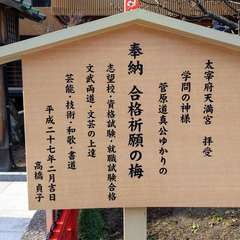 太宰府天満宮 拝受
学問の神様
菅原道真公ゆかりの
奉納 合格祈願の梅
志望校・資格試験・就職試験合格
文武両道・文芸の上達
芸能・技術・和歌・書道
平成二十七年二月吉日
高橋貞子